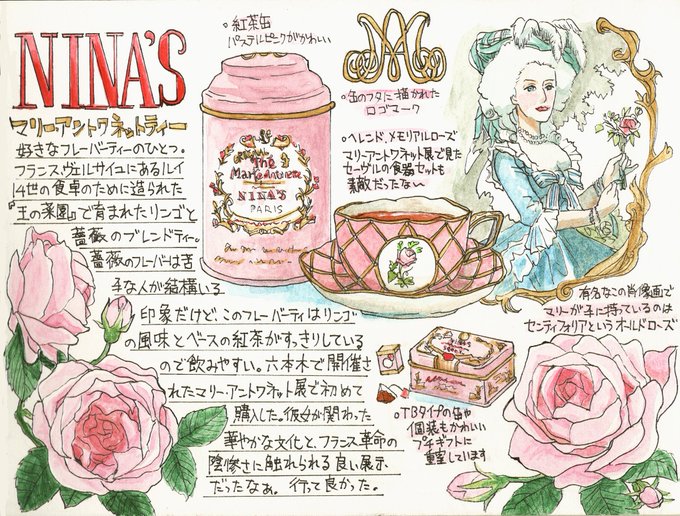 NINA'S
マリーアントワネットティー
好きなフレーバーティーのひとつ。
フランス、ヴェルサイユにあるルイ
14世の食卓のために造られた
『王の菜園』で育まれたリンゴと
薔薇のブレンドティー。
薔薇のフレーバーは苦
手な人が結構いる
印象だけど、このフレーバーティはリンゴ
の風味とベースの紅茶がすっきりしている
ので飲みやすい。六本木で開催さ
れたマリー・アントワネット展で初めて
購入した。彼女が関わった
華やかな文化と、フランス革命の
陰惨さに触れられる良い展示
だったなぁ。行って良かった。
◦紅茶缶
パステルピンクがかわいい
The
Marie-Antoinette
NINA'S
PARIS
◦缶のフタに描かれた
ロゴマーク
◦ヘレンド、メモリアルローズ
マリーアントワネット展で見た
セーヴルの食器セットも
素敵だったな〜
有名なこの肖像画で
マリーが手に持っているのは
センティフォリアというオールドローズ
◦TBタイプの缶や
個装もかわいい
プチギフトに
重宝しています